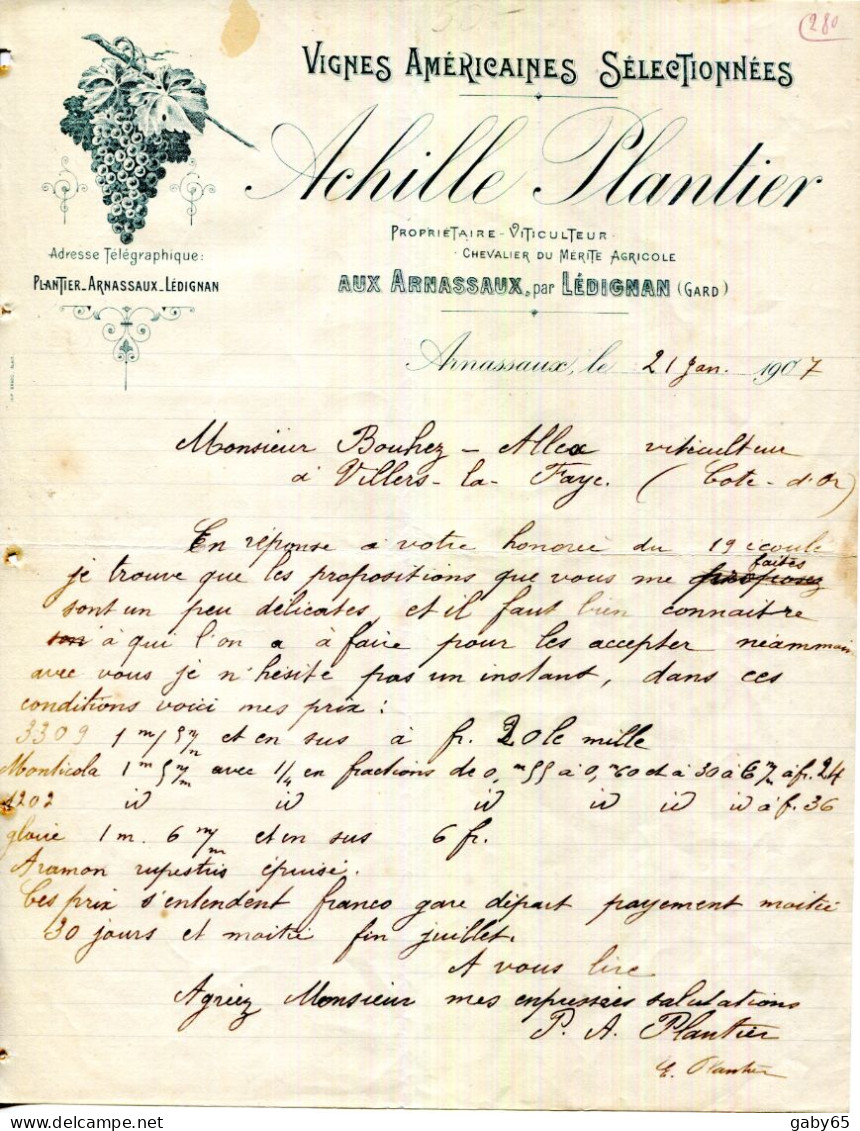 280
VIGNES AMÉRICAINES SÉLECTIONNÉES
Achille Plantier
PROPRIÉTAIRE-VITICULTEUR
CHEVALIER DU MÉRITE AGRICOLE
AUX ARNASSAUX, par LÉDIGNAN (GARD)
Adresse Télégraphique:
PLANTIER_ARNASSAUX_LÉDIGNAN
Arnassaux, le 21 Jan. 1907
Monsieur Bouhez - Allex viticulteur
à Villers-la-Faye. (Cote-d'Or)
En réponse à votre honorée du 19 écoulé
je trouve que les propositions que vous me proposez faites
sont un peu délicates, et il faut bien connaitre
son à qui l'on a à faire pour les accepter néammoin
avec vous je n'hésite pas un instant, dans ces
conditions voici mes prix:
3309 1m/5 m/m et en sus à fr. 20 le mille
Monticola 1m 5 m/m avec 1/4 en fractions de 0,m55 à 0,m60 et à 30 à 6 m/m à fr. 24
1202 id id id id id id à f. 36
gloire 1 m. 6 m/m et en sus 6 fr.
Aramon rupestris épuisé.
Ces prix s'entendent franco gare départ payement moitié
30 jours et moitié fin juillet.
A vous lire
Agréez Monsieur mes enpressées salutations
P. A. Plantier
E. Plantier
gaby65